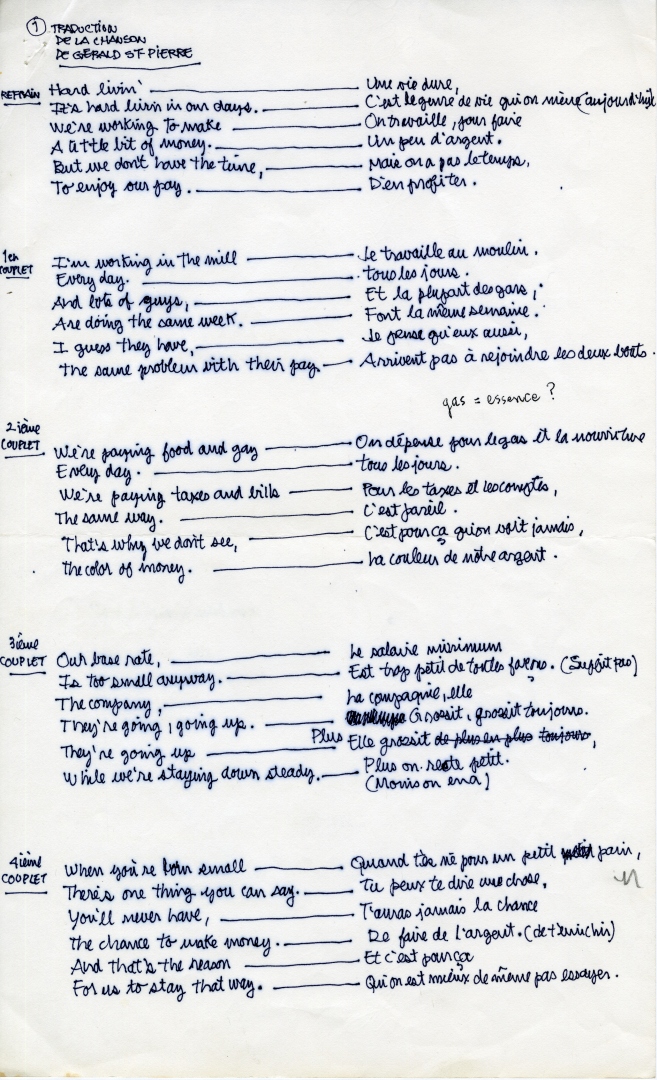 1 TRADUCTION
DE LA CHANSON
DE GÉRALD ST-PIERRE
REFRAIN Hard livin' Une vie dure,
It's hard livin in our days. C'est le genre de vie qu'on mène (aujourd'hui)
We're working to make On travaille, pour faire
A little bit of money. Un peu d'argent.
But we don't have the time, Mais on a pas le temps,
To enjoy our pay. D'en profiter.
1er COUPLET I'm working in the mill Je travaille au moulin.
Every day. tous les jours.
And lots of guys, Et la plupart des gars,
Are doing the same week. Font la même semaine.
I guess they have, Je pense qu'eux aussi,
The same problem with their pay. Arrivent pas à rejoindre les deux bouts.
gas = essence ?
2ième COUPLET We're paying food and gay On dépense pour le gas et la nourriture
Every day. tous les jours.
We're paying taxes and bills Pour les taxes et les comptes,
The same way. C'est pareil.
That's why we don't see, C'est pour ça qu'on voit jamais,
The color of money. La couleur de notre argent.
3ième COUPLET Our base rate, Le salaire minimum
Is too small anyway. Est trop petit de toutes façons. (Suffit pas)
The company, La compagnie, elle
They're going, going up. Grossit, grossit toujours.
They're going up Plus Elle grossit de plus en plus toujours,
While we're staying down steady. Plus on reste petit.
(Moins on en a)
4ième COUPLET When you're born small Quand t'es né pour un petit pain,
There's one thing you can say. Tu peux te dire une chose,
You'll never have, T'auras jamais la chance
The chance to make money. De faire de l'argent. (de t'enrichir)
And that's the reason Et c'est pour ça
For us to stay that way. Qu'on est mieux de même pas essayer.